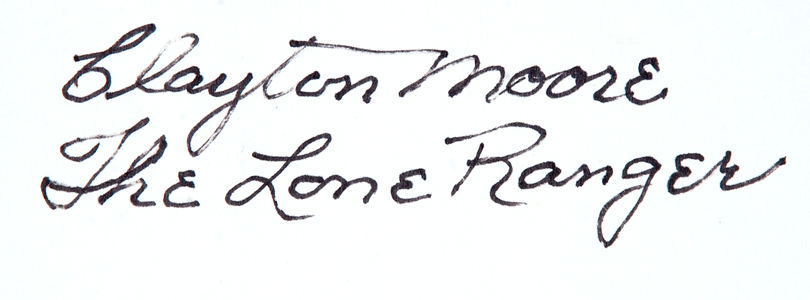 Clayton Moore
The Lone Ranger